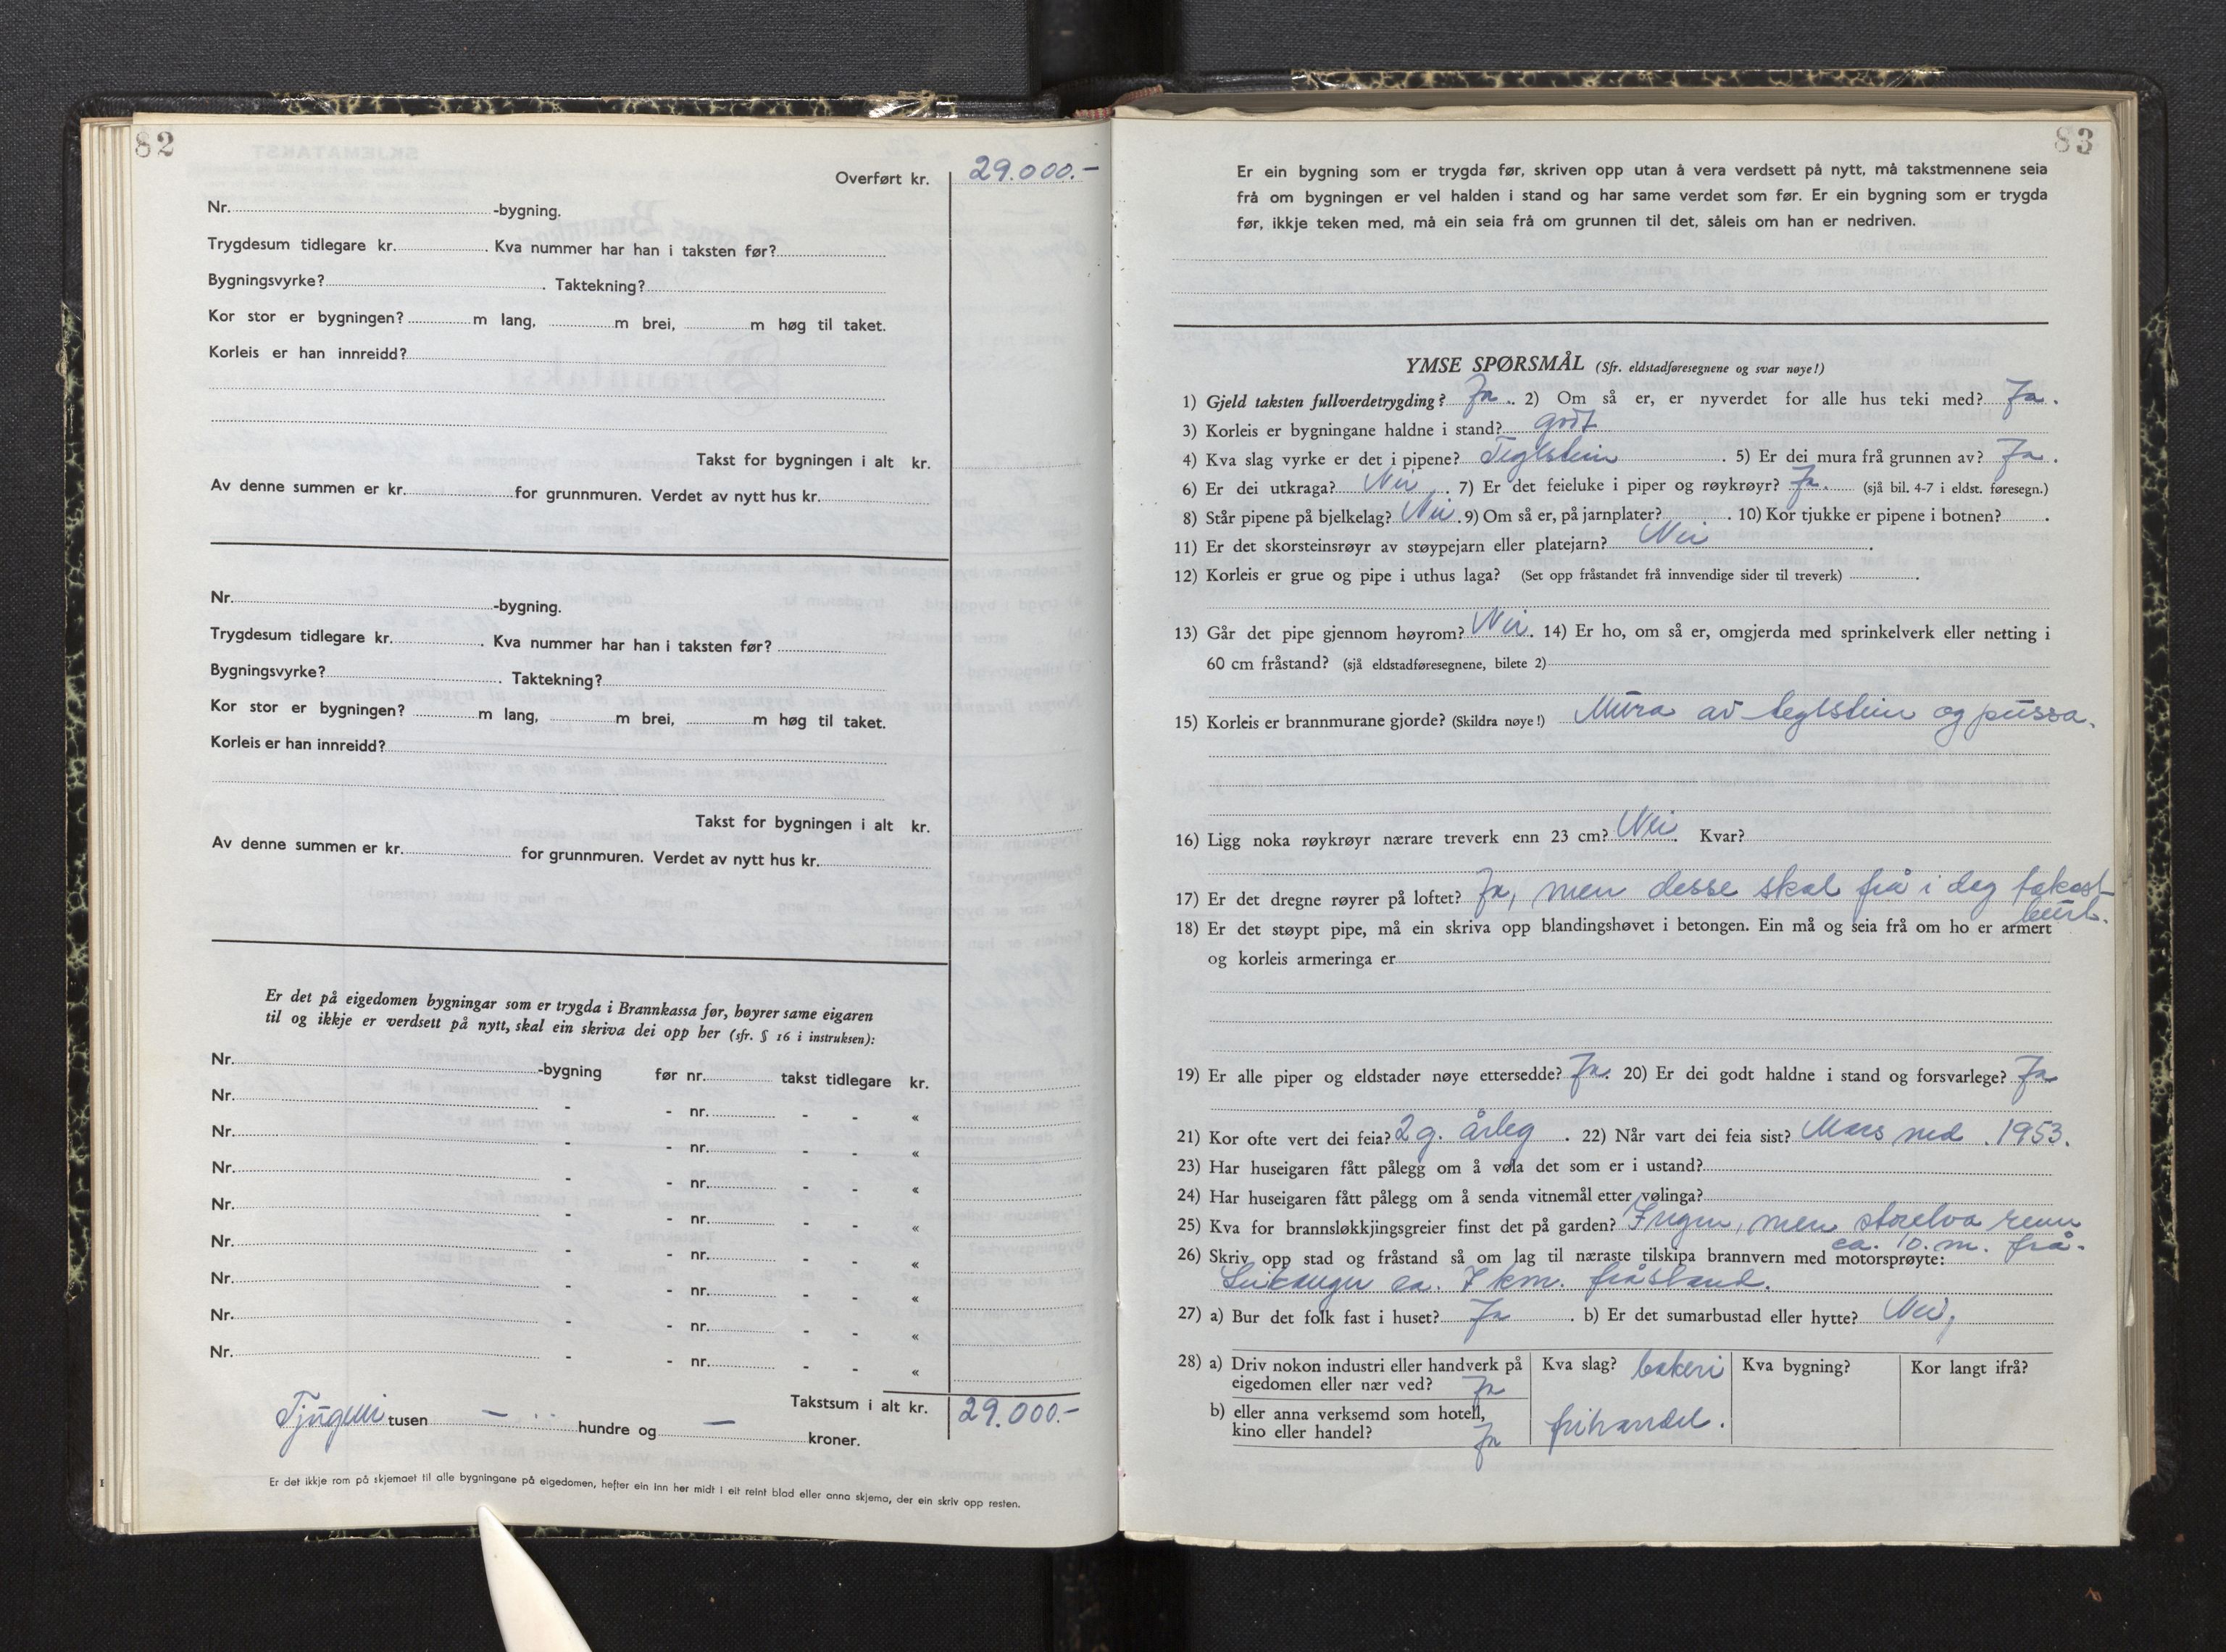 82
Overført kr. 29.000.-
Nr. -bygning.
Trygdesum tidlegare kr. . Kva nummer har han i taksten før?
Bygningsvyrke? . Taktekning?
Kor stor er bygningen? m lang, m brei, m høg til taket.
Korleis er han innreidd?
Takst for bygningen i alt kr.
Av denne summen er kr. for grunnmuren. Verdet av nytt hus kr.
Nr. -bygning.
Trygdesum tidlegare kr. . Kva nummer har han i taksten før?
Bygningsvyrke? . Taktekning?
Kor stor er bygningen? m lang, m brei, m høg til taket.
Korleis er han innreidd?
Takst for bygningen i alt kr.
Av denne summen er kr. for grunnmuren. Verdet av nytt hus kr.
Er det på eigedomen bygningar som er trygda i Brannkassa før, høyrer same eigaren
til og ikkje er verdsett på nytt, skal ein skriva dei opp her (sfr. § 16 i instruksen):
Nr. -bygning før nr. takst tidlegare kr.
Nr. - - nr. - - «
Nr. - - nr. - - «
Nr. - - nr. - - «
Nr. - - nr. - - «
Nr. - - nr. - - «
Nr. - - nr. - - «
Nr. - - nr. - - «
Nr. - - nr. - - «
Takstsum i alt kr. 29.000.-
Tjugeni tusen - hundre og - kroner.
Er det ikkje rom på skjemaet til alle bygningane på eigedomen, hefter ein inn her midt i eit reint blad eller anna skjema, der ein skriv opp resten.
1
83
Er ein bygning som er trygda før, skriven opp utan å vera verdsett på nytt, må takstmennene seia
frå om bygningen er vel halden i stand og har same verdet som før. Er ein bygning som er trygda
før, ikkje teken med, må ein seia frå om grunnen til det, såleis om han er nedriven.
YMSE SPØRSMÅL (Sfr. eldstadføresegnene og svar nøye!)
1) Gjeld taksten fullverdetrygding? Ja. 2) Om så er, er nyverdet for alle hus teki med? Ja.
3) Korleis er bygningane haldne i stand? godt
4) Kva slag vyrke er det i pipene? Teglstein . 5) Er dei mura frå grunnen av? Ja.
6) Er dei utkraga? Nei . 7) Er det feieluke i piper og røykrøyr? Ja. (sjå bil. 4-7 i eldst. føresegn.)
8) Står pipene på bjelkelag? Nei . 9) Om så er, på jarnplater? . 10) Kor tjukke er pipene i botnen? .
11) Er det skorsteinsrøyr av støypejarn eller platejarn? Nei .
12) Korleis er grue og pipe i uthus laga? (Set opp fråstandet frå innvendige sider til treverk) .
13) Går det pipe gjennom høyrom? Nei. 14) Er ho, om så er, omgjerda med sprinkelverk eller netting i
60 cm fråstand? (sjå eldstadføresegnene, bilete 2)
15) Korleis er brannmurane gjorde? (Skildra nøye!) Mura av teglstein og pussa.
16) Ligg noka røykrøyr nærare treverk enn 23 cm? Nei. Kvar?
17) Er det dregne røyrer på loftet? Ja, men desse skal frå i dag takast
burt.
18) Er det støypt pipe, må ein skriva opp blandingshøvet i betongen. Ein må og seia frå om ho er armert
og korleis armeringa er
19) Er alle piper og eldstader nøye ettersedde? Ja. 20) Er dei godt haldne i stand og forsvarlege? Ja
21) Kor ofte vert dei feia? 2 g. årleg . 22) Når vart dei feia sist? Mars md . 1953.
23) Har huseigaren fått pålegg om å vøla det som er i ustand?
24) Har huseigaren fått pålegg om å senda vitnemål etter vølinga?
25) Kva for brannsløkkjingsgreier finst det på garden? Ingen, men storelva renn
ca. 10. m. frå.
26) Skriv opp stad og fråstand så om lag til næraste tilskipa brannvern med motorsprøyte:
Leikanger ca. 7 km. fråstand.
27) a) Bur det folk fast i huset? Ja . b) Er det sumarbustad eller hytte? Nei,
28) a) Driv nokon industri eller handverk på eigedomen eller nær ved? Ja Kva slag? bakeri Kva bygning? Kor langt ifrå?
b) eller anna verksemd som hotell, kino eller handel? Ja frihandel.